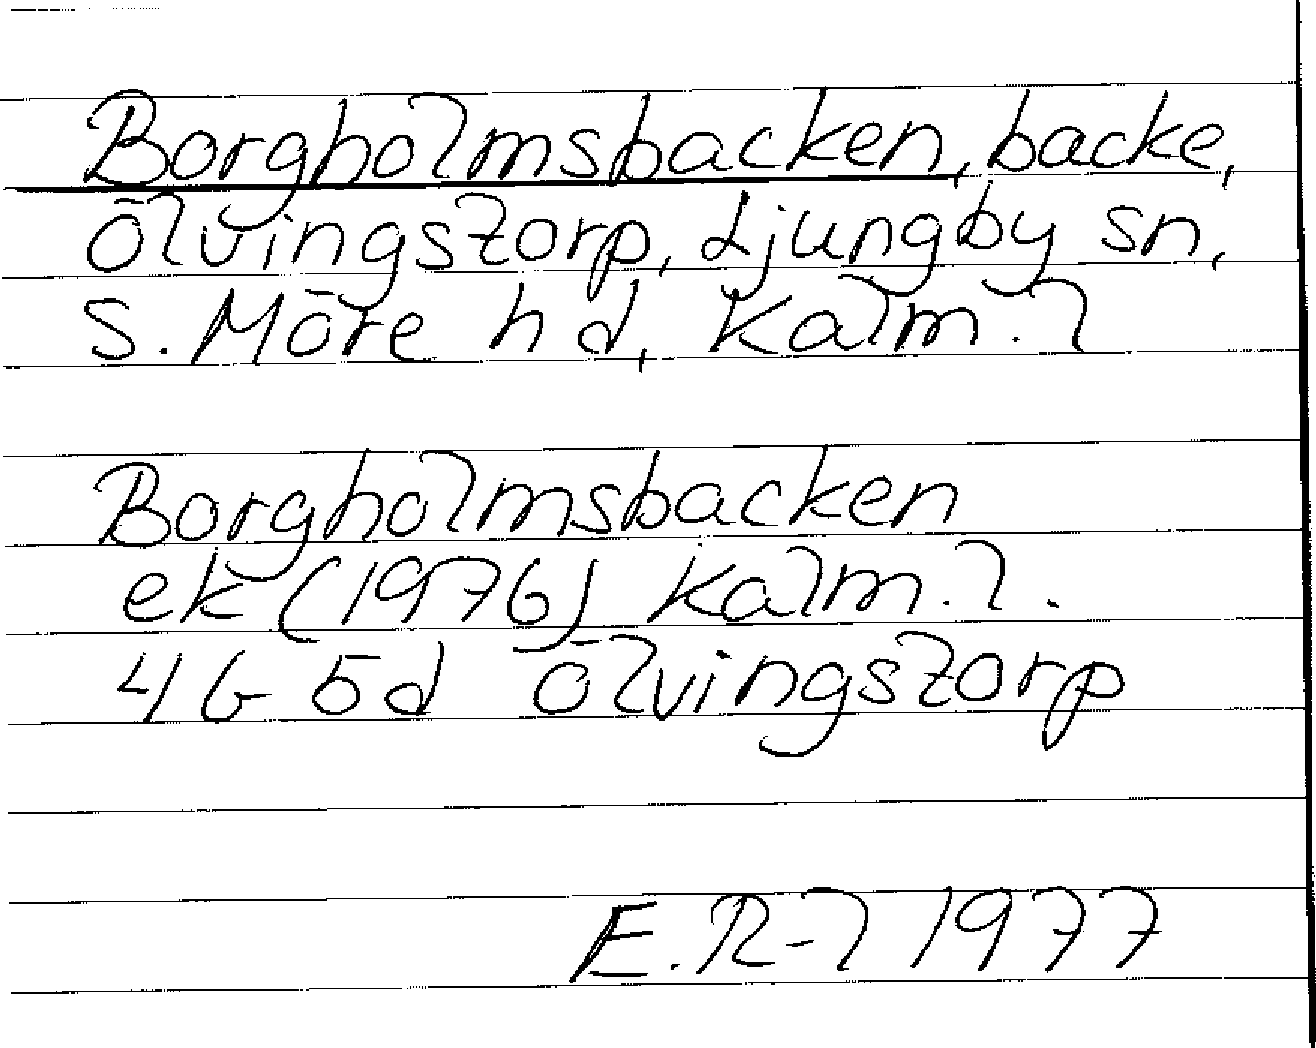 Borgholmsbacken, backe,
Ölvingstorp, Ljungby sn,
S. Möre hd, Kalm. l
Borgholmsbacken
ek (1976) Kalm. l.
4G 5d Ölvingstorp
E. R-l 1977